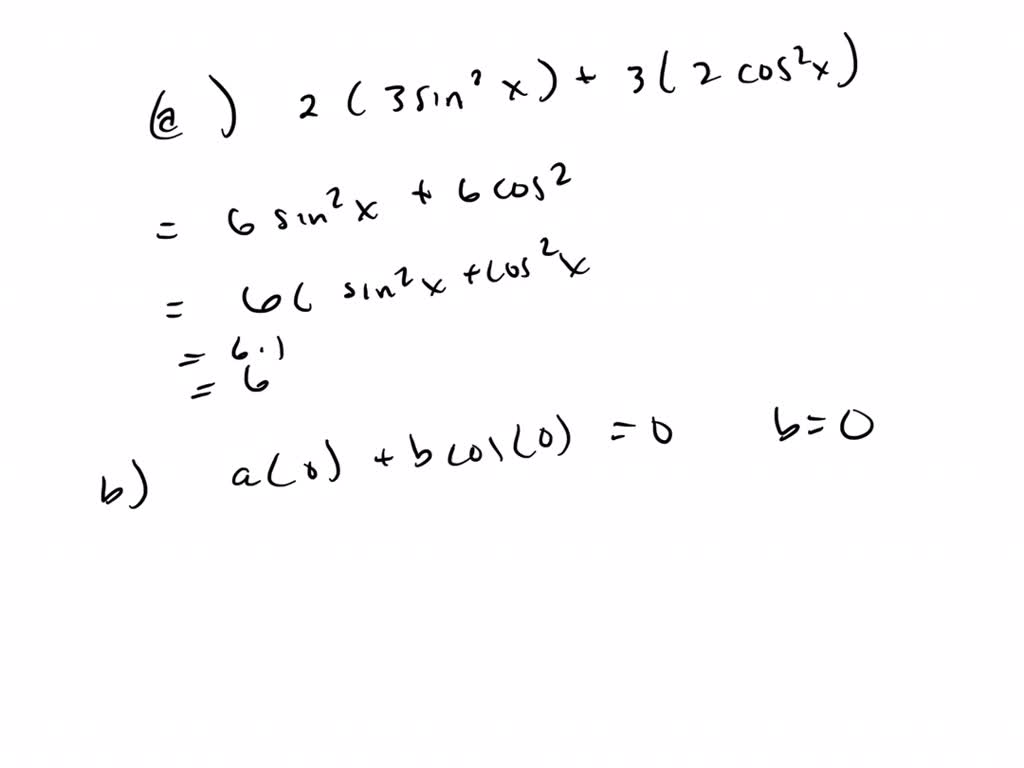 (a) 2 ( 3 sin² x ) + 3 ( 2 cos² x )
= 6 sin² x + 6 cos²
= 6 ( sin² x + cos² x
= 6 · 1
= 6
b) a(0) + b cos(0) = 0 b = 0